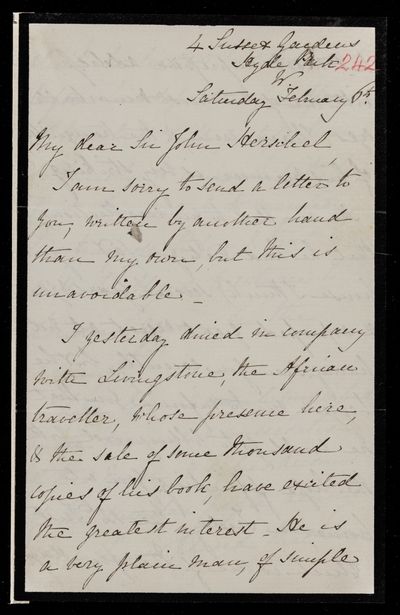 4 Sussex Gardens
Hyde Park 242
W.
Saturday February 6th.
My dear Sir John Herschel,
I am sorry to send a letter to
you, written by another hand
than my own, but this is
unavoidable -
I yesterday dined in company
with Livingstone, the African
traveller, whose presence here,
& the sale of some thousand
copies of his book, have excited
the greatest interest - He is
a very plain man, of simple